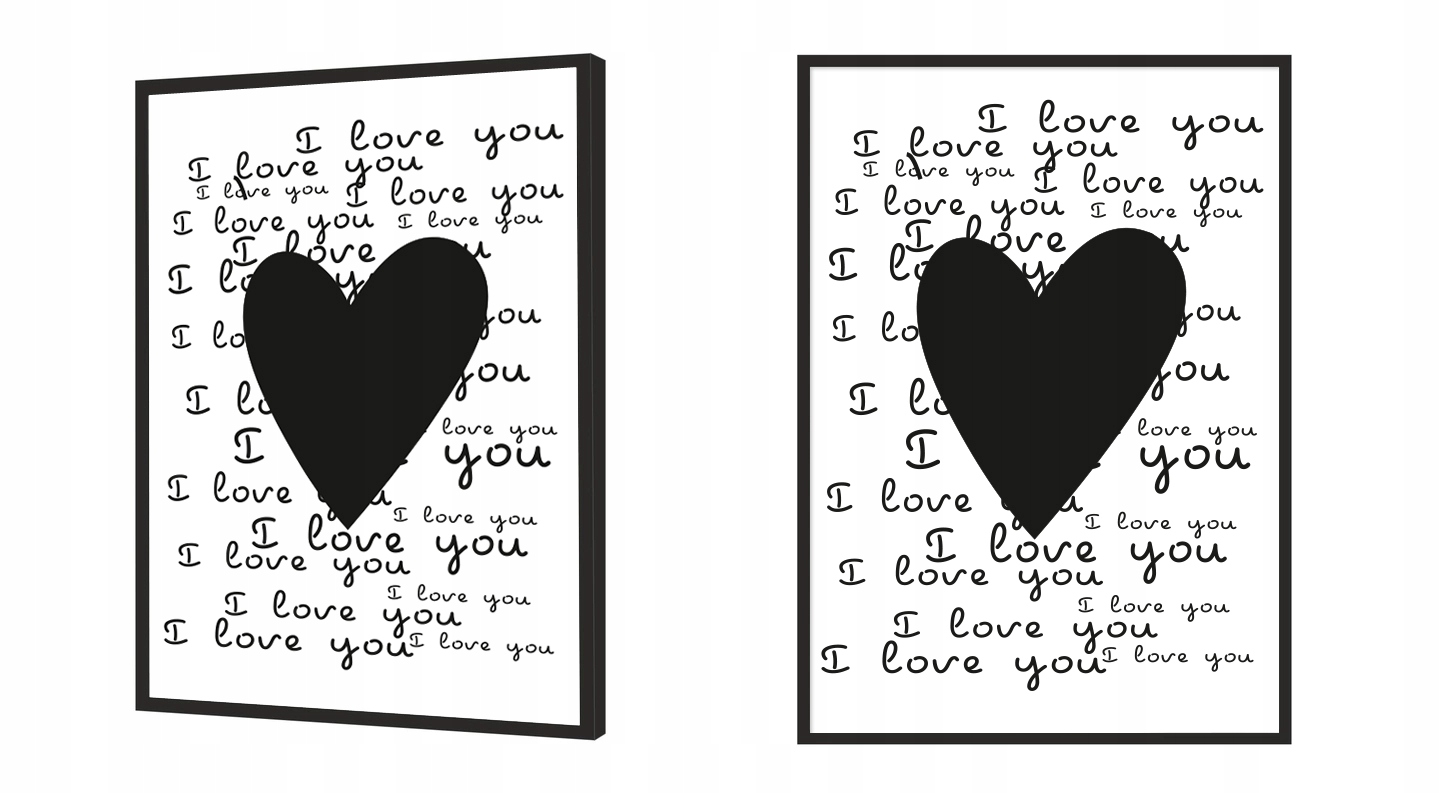 I love you
I love you
I love you
I love you
I love you
I love you
I love u
I lo y
I lo you
I lo you
love you
I you
I love you
I love you
I love you
I love you
I love you
I love you
I love you
I love you
I love you
I love you
I love you
I love you
I love you
I love you
I love u
I lo y
I lo you
I lo you
love you
I you
I love you
I love you
I love you
I love you
I love you
I love you
I love you
I love you